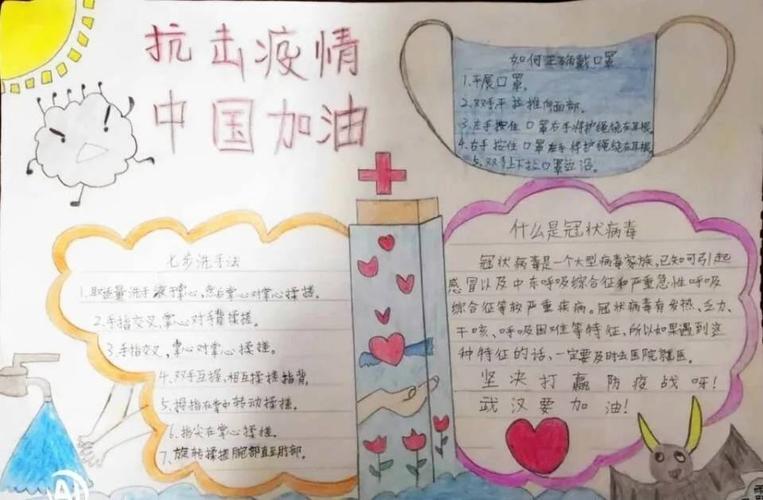 抗击疫情
中国加油
如何正确戴口罩
1.平展口罩。
2.双手平拉推向面部。
3.左手按住口罩右手将护绳绕在耳根。
4.右手按住口罩左手将护绳绕在耳根。
5.双手上下拉口罩边沿。
七步洗手法
1.取适量洗手液于掌心,然后掌心对掌心揉搓。
2.手指交叉,掌心对手背揉搓。
3.手指交叉,掌心对掌心揉搓。
4.双手互握,相互揉搓指背。
5.拇指在掌中转动揉搓。
6.指尖在掌心揉搓。
7.旋转揉搓腕部直至肘部。
什么是冠状病毒
冠状病毒是一个大型病毒家族,已知可引起
感冒以及中东呼吸综合征和严重急性呼吸
综合征等较严重疾病。冠状病毒有发热、乏力、
干咳、呼吸困难等特征,所以如果遇到这
种特征的话、一定要及时去医院就医。
坚决打赢防疫战呀!
武汉要加油!